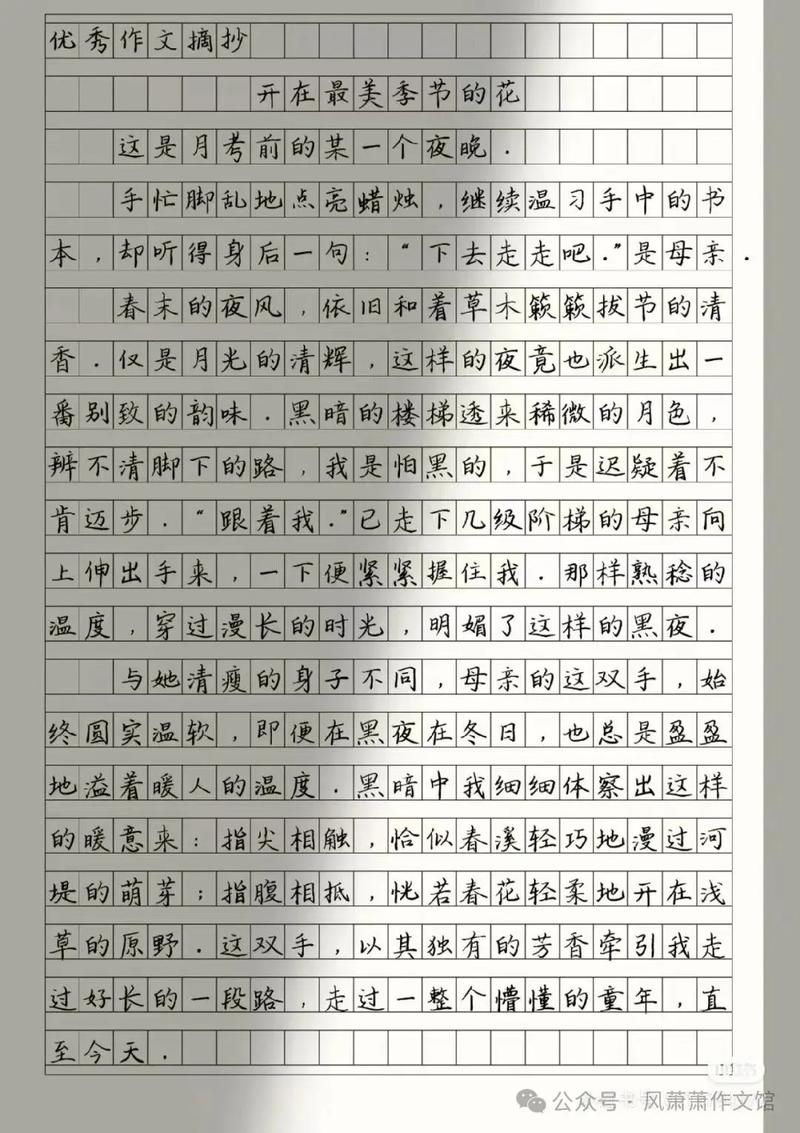 优秀作文摘抄
开在最美季节的花
这是月考前的某一个夜晚.
手忙脚乱地点亮蜡烛，继续温习手中的书
本，却听得身后一句：“下去走走吧.”是母亲.
春末的夜风，依旧和着草木簌簌拔节的清
香.仅是月光的清辉，这样的夜竟也派生出一
番别致的韵味.黑暗的楼梯透来稀微的月色，
辨不清脚下的路，我是怕黑的，于是迟疑着不
肯迈步.“跟着我.”已走下几级阶梯的母亲向
上伸出手来，一下便紧紧握住我.那样熟稔的
温度，穿过漫长的时光，明媚了这样的黑夜.
与她清瘦的身子不同，母亲的这双手，始
终圆实温软，即便在黑夜在冬日，也总是盈盈
地溢着暖人的温度.黑暗中我细细体察出这样
的暖意来：指尖相触，恰似春溪轻巧地漫过河
堤的萌芽；指腹相抵，恍若春花轻柔地开在浅
草的原野.这双手，以其独有的芳香牵引我走
过好长的一段路，走过一整个懵懂的童年，直
至今天.
公众号·风萧萧作文馆